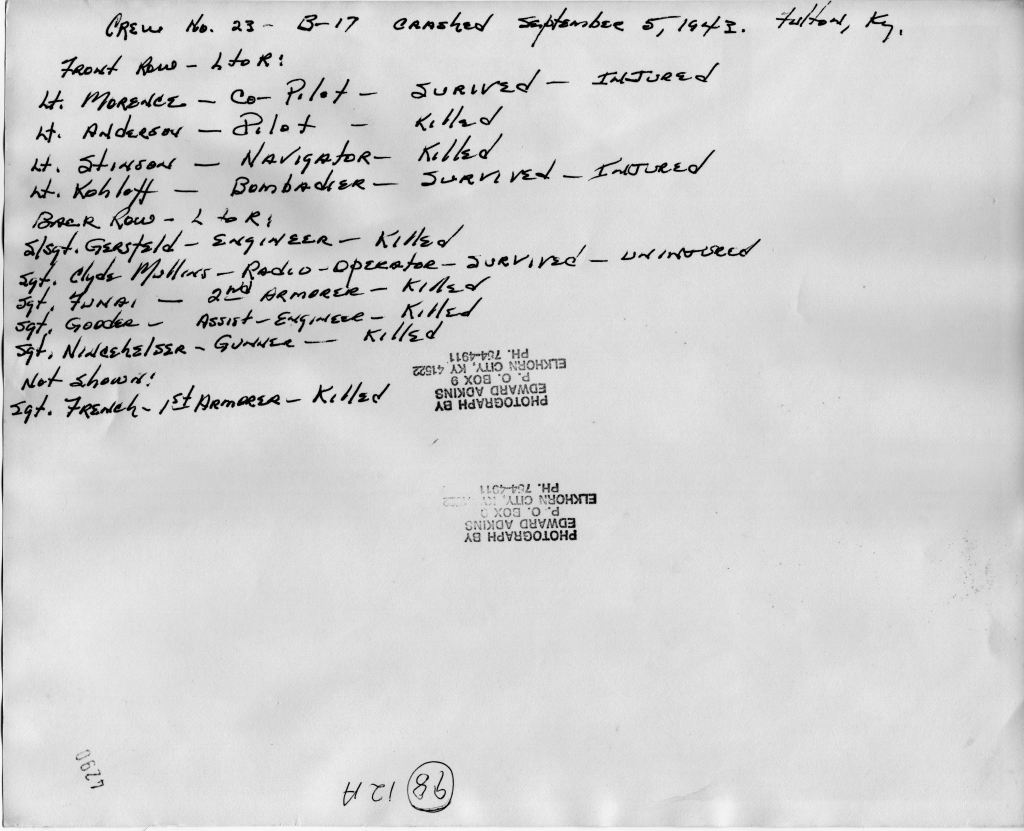 CREW No. 23 - B-17 CRASHED September 5, 1943. Fulton, Ky.
FRONT ROW - L to R:
Lt. MORENCE - Co-Pilot - SURVIVED - INJURED
Lt. ANDERSON - Pilot - Killed
Lt. STINSON - NAVIGATOR - Killed
Lt. Kohloff - BOMBADIER - SURVIVED - INJURED
BACK ROW - L to R:
S/Sgt. GERSFELD - ENGINEER - Killed
Sgt. Clyde Mullins - RADIO-OPERATOR - SURVIVED - UNINJURED
Sgt. FUNAI - 2nd ARMORER - Killed
Sgt. GOODER - ASSIST-ENGINEER - Killed
Sgt. NINCEHELSER - GUNNER - Killed
Not Shown:
Sgt. FRENCH - 1st ARMORER - Killed
PHOTOGRAPH BY
EDWARD ADKINS
P. O. BOX 9
ELKHORN CITY, KY 41522
PH. 754-4911
PHOTOGRAPH BY
EDWARD ADKINS
P. O. BOX 9
ELKHORN CITY, KY
PH. 754-4911
4290
98 12A